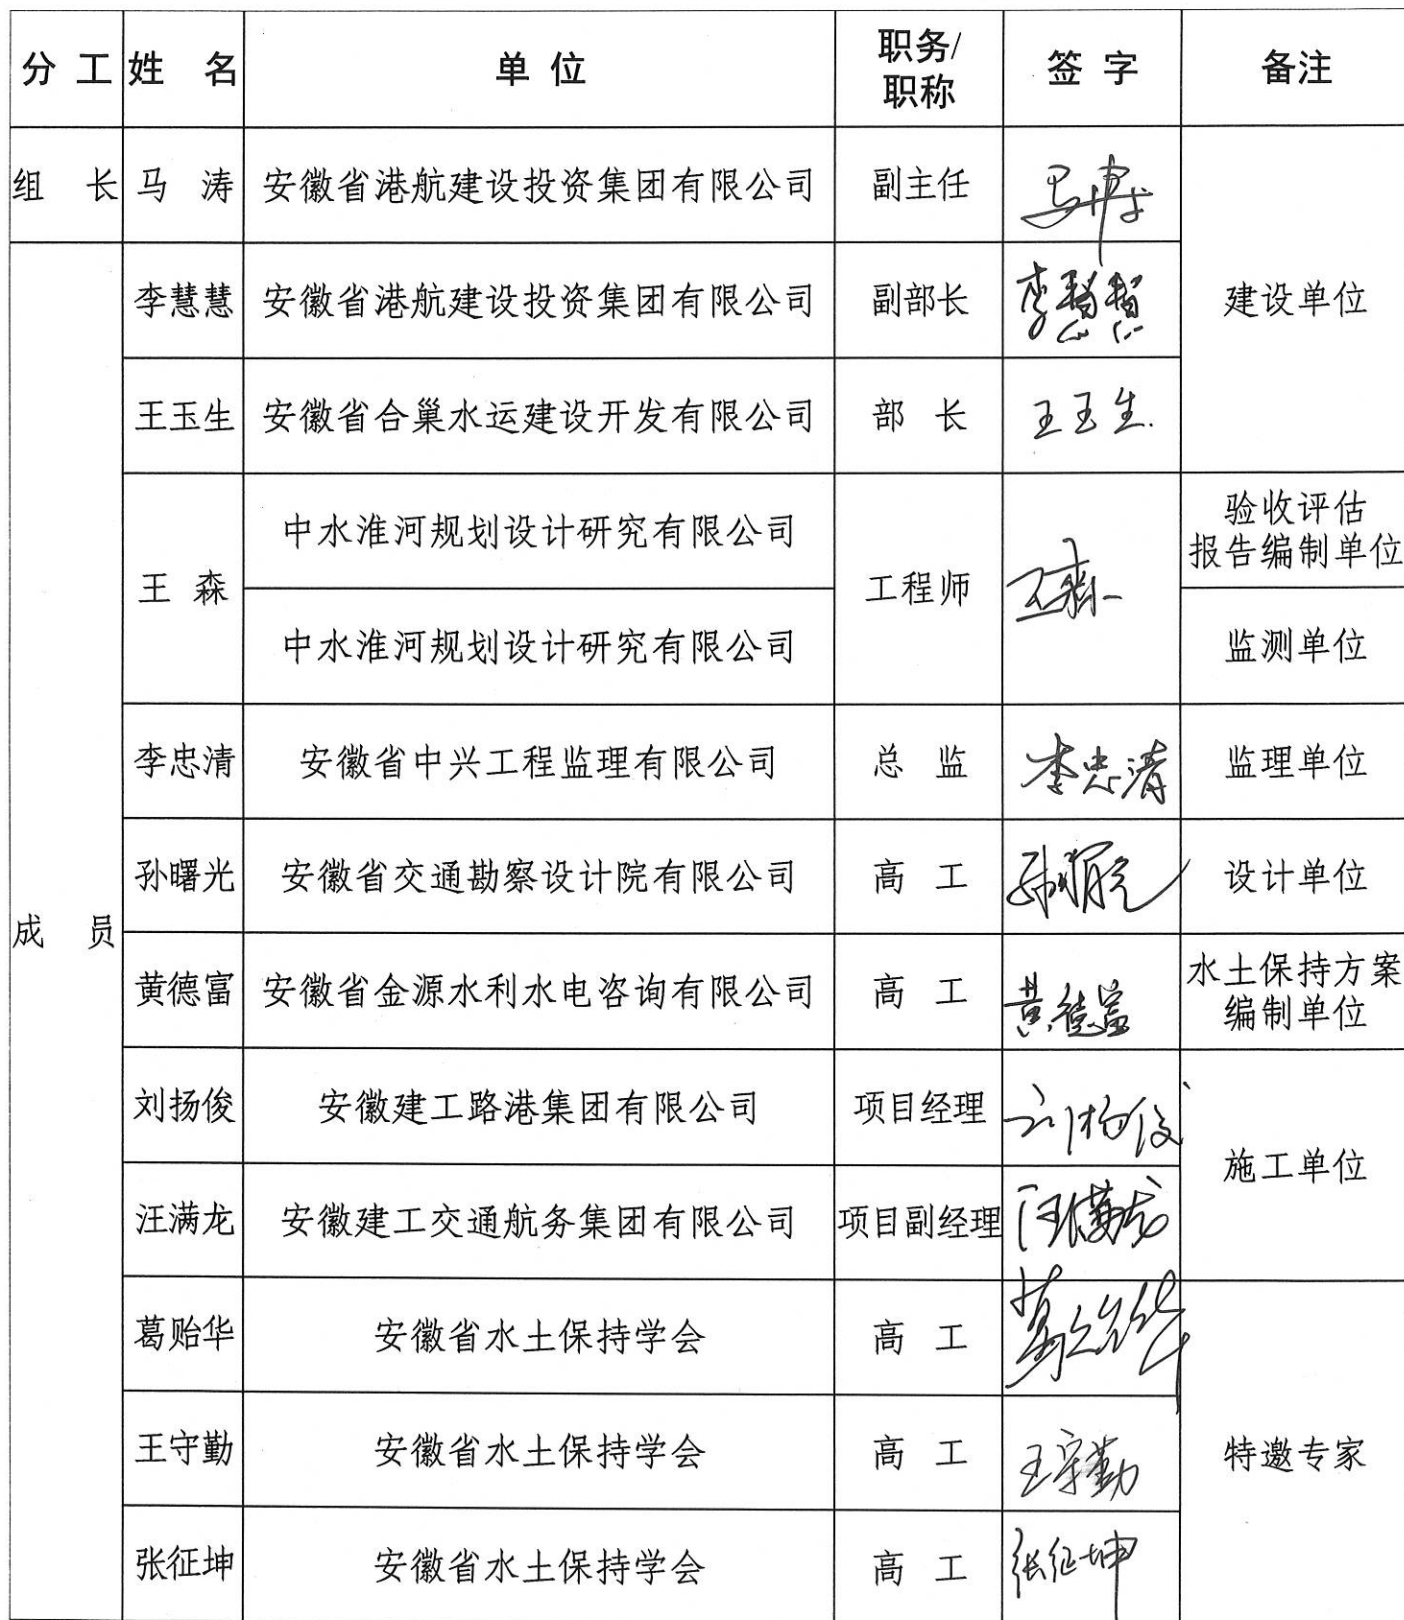 分 工 姓 名 单 位 职务/ 签 字 备注
职称
组 长 马 涛 安徽省港航建设投资集团有限公司 副主任 马涛
李慧慧 安徽省港航建设投资集团有限公司 副部长 李慧慧 建设单位
王玉生 安徽省合巢水运建设开发有限公司 部 长 王玉生
中水淮河规划设计研究有限公司 验收评估
报告编制单位
王 森 工程师 王森
中水淮河规划设计研究有限公司 监测单位
李忠清 安徽省中兴工程监理有限公司 总 监 李忠清 监理单位
孙曙光 安徽省交通勘察设计院有限公司 高 工 孙曙光 设计单位
成 员
黄德富 安徽省金源水利水电咨询有限公司 高 工 黄德富 水土保持方案
编制单位
刘扬俊 安徽建工路港集团有限公司 项目经理 刘扬俊
施工单位
汪满龙 安徽建工交通航务集团有限公司 项目副经理 汪满龙
葛贻华 安徽省水土保持学会 高 工 葛贻华
王守勤 安徽省水土保持学会 高 工 王守勤 特邀专家
张征坤 安徽省水土保持学会 高 工 张征坤